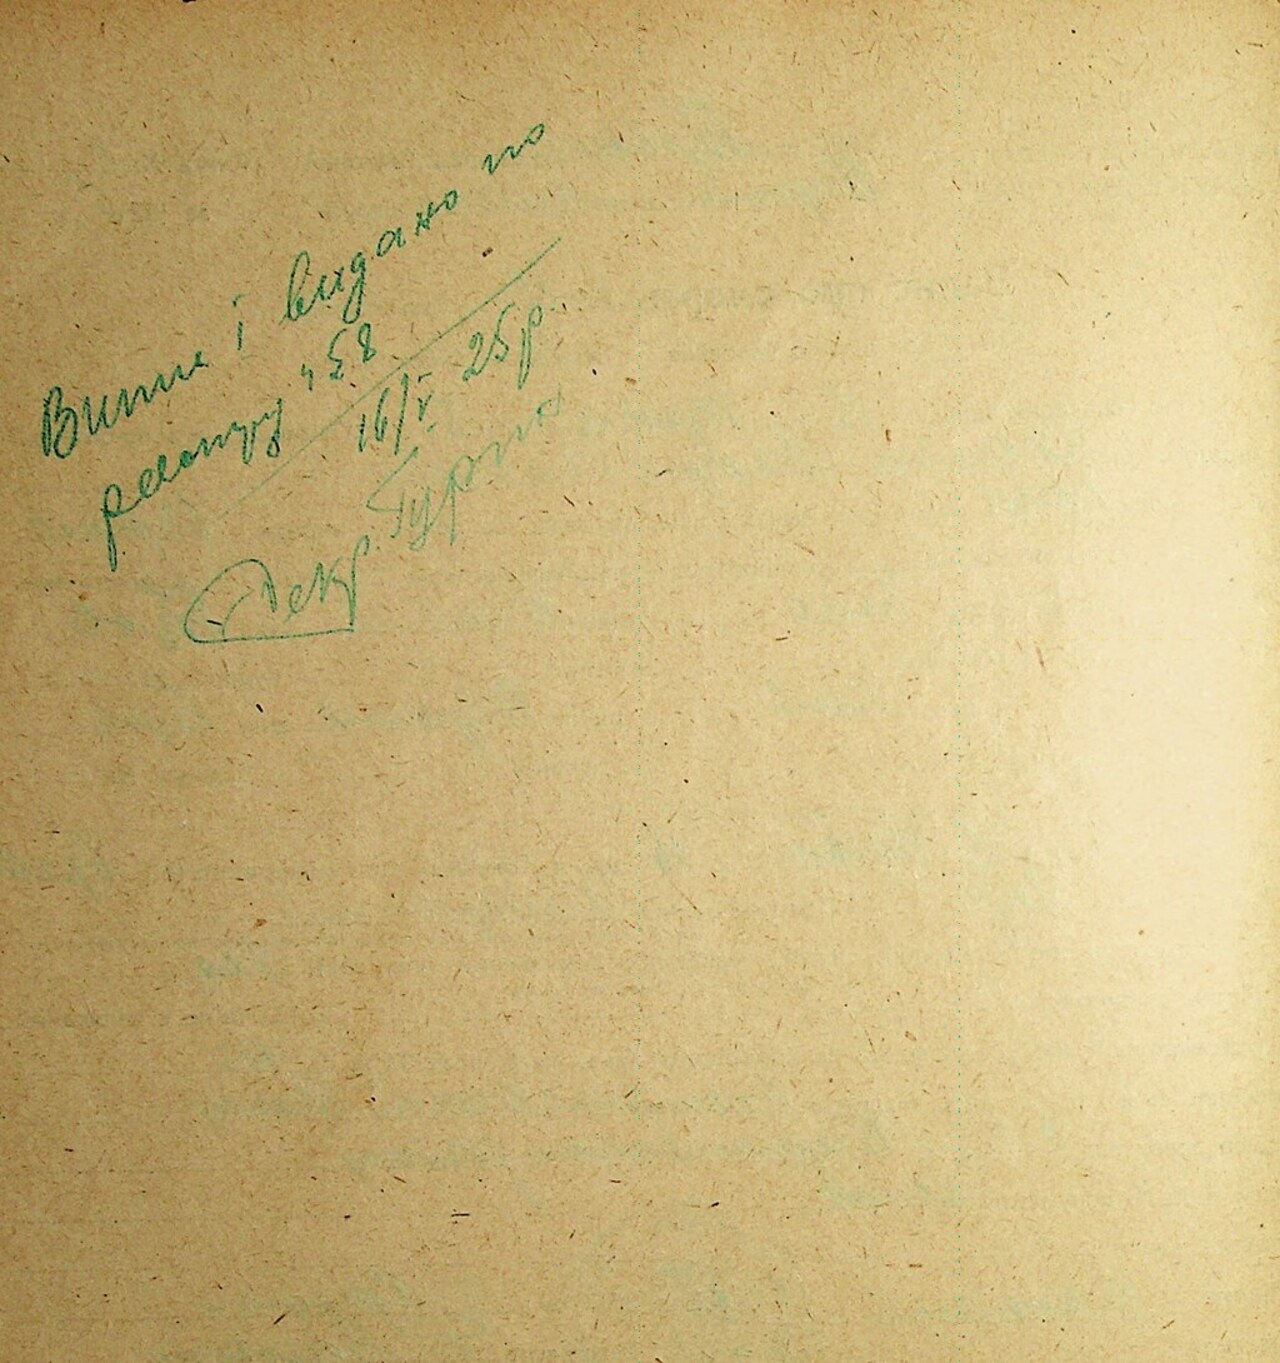 Випис і видано по
реєстру ч 58
16/V 25р.
Секр. Гурин